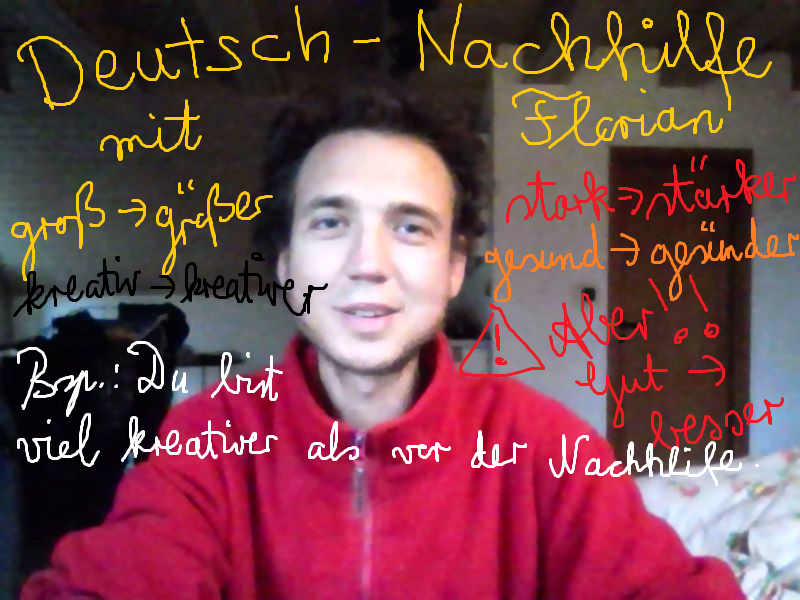 Deutsch - Nachhilfe
mit Florian
groß → größer
kreativ → kreativer
stark → stärker
gesund → gesünder
! Aber !!
gut →
besser
Bsp.: Du bist
viel kreativer als vor der Nachhilfe.